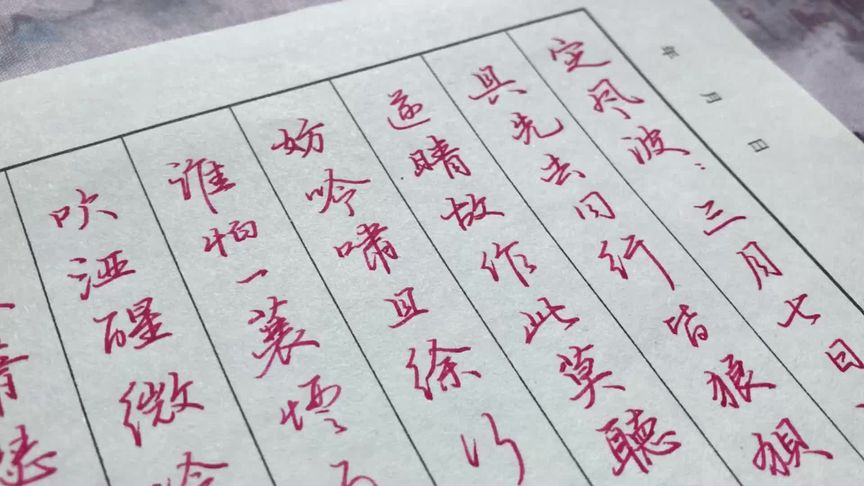 年 月 日
定风波：三月七日
具先去同行皆狼狈
遂晴故作此莫聽
妨吟啸且徐行
谁怕一蓑煙
吹酒醒微冷